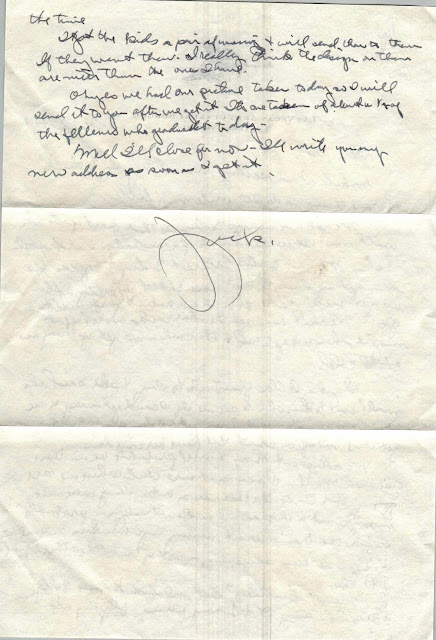 the time
I got the kids a pair of wings & will send them to them
if they want them. I really think the design on them
are nicer than the ones I have.
Oh yes we had our picture taken today so I will
send it to you after we get it. It's one taken of about of
the fellows who graduated today -
Well I'll close for now - I'll write you my
new address as soon as I get it.
Jack.